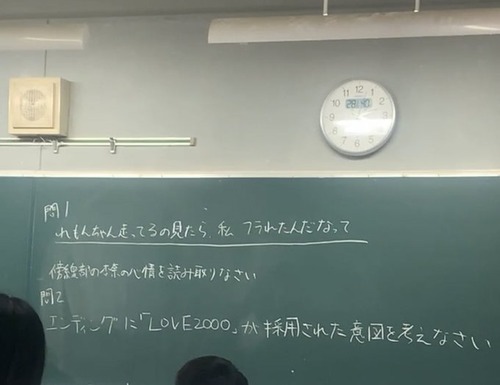 問1
れもんちゃん走ってるの見たら、私 フラれたんだなって
傍線部の本条の心情を読み取りなさい
問2
エンディングに「LOVE2000」が採用された意図を考えなさい
12
1
2
3
4
5
6
7
8
9
10
11